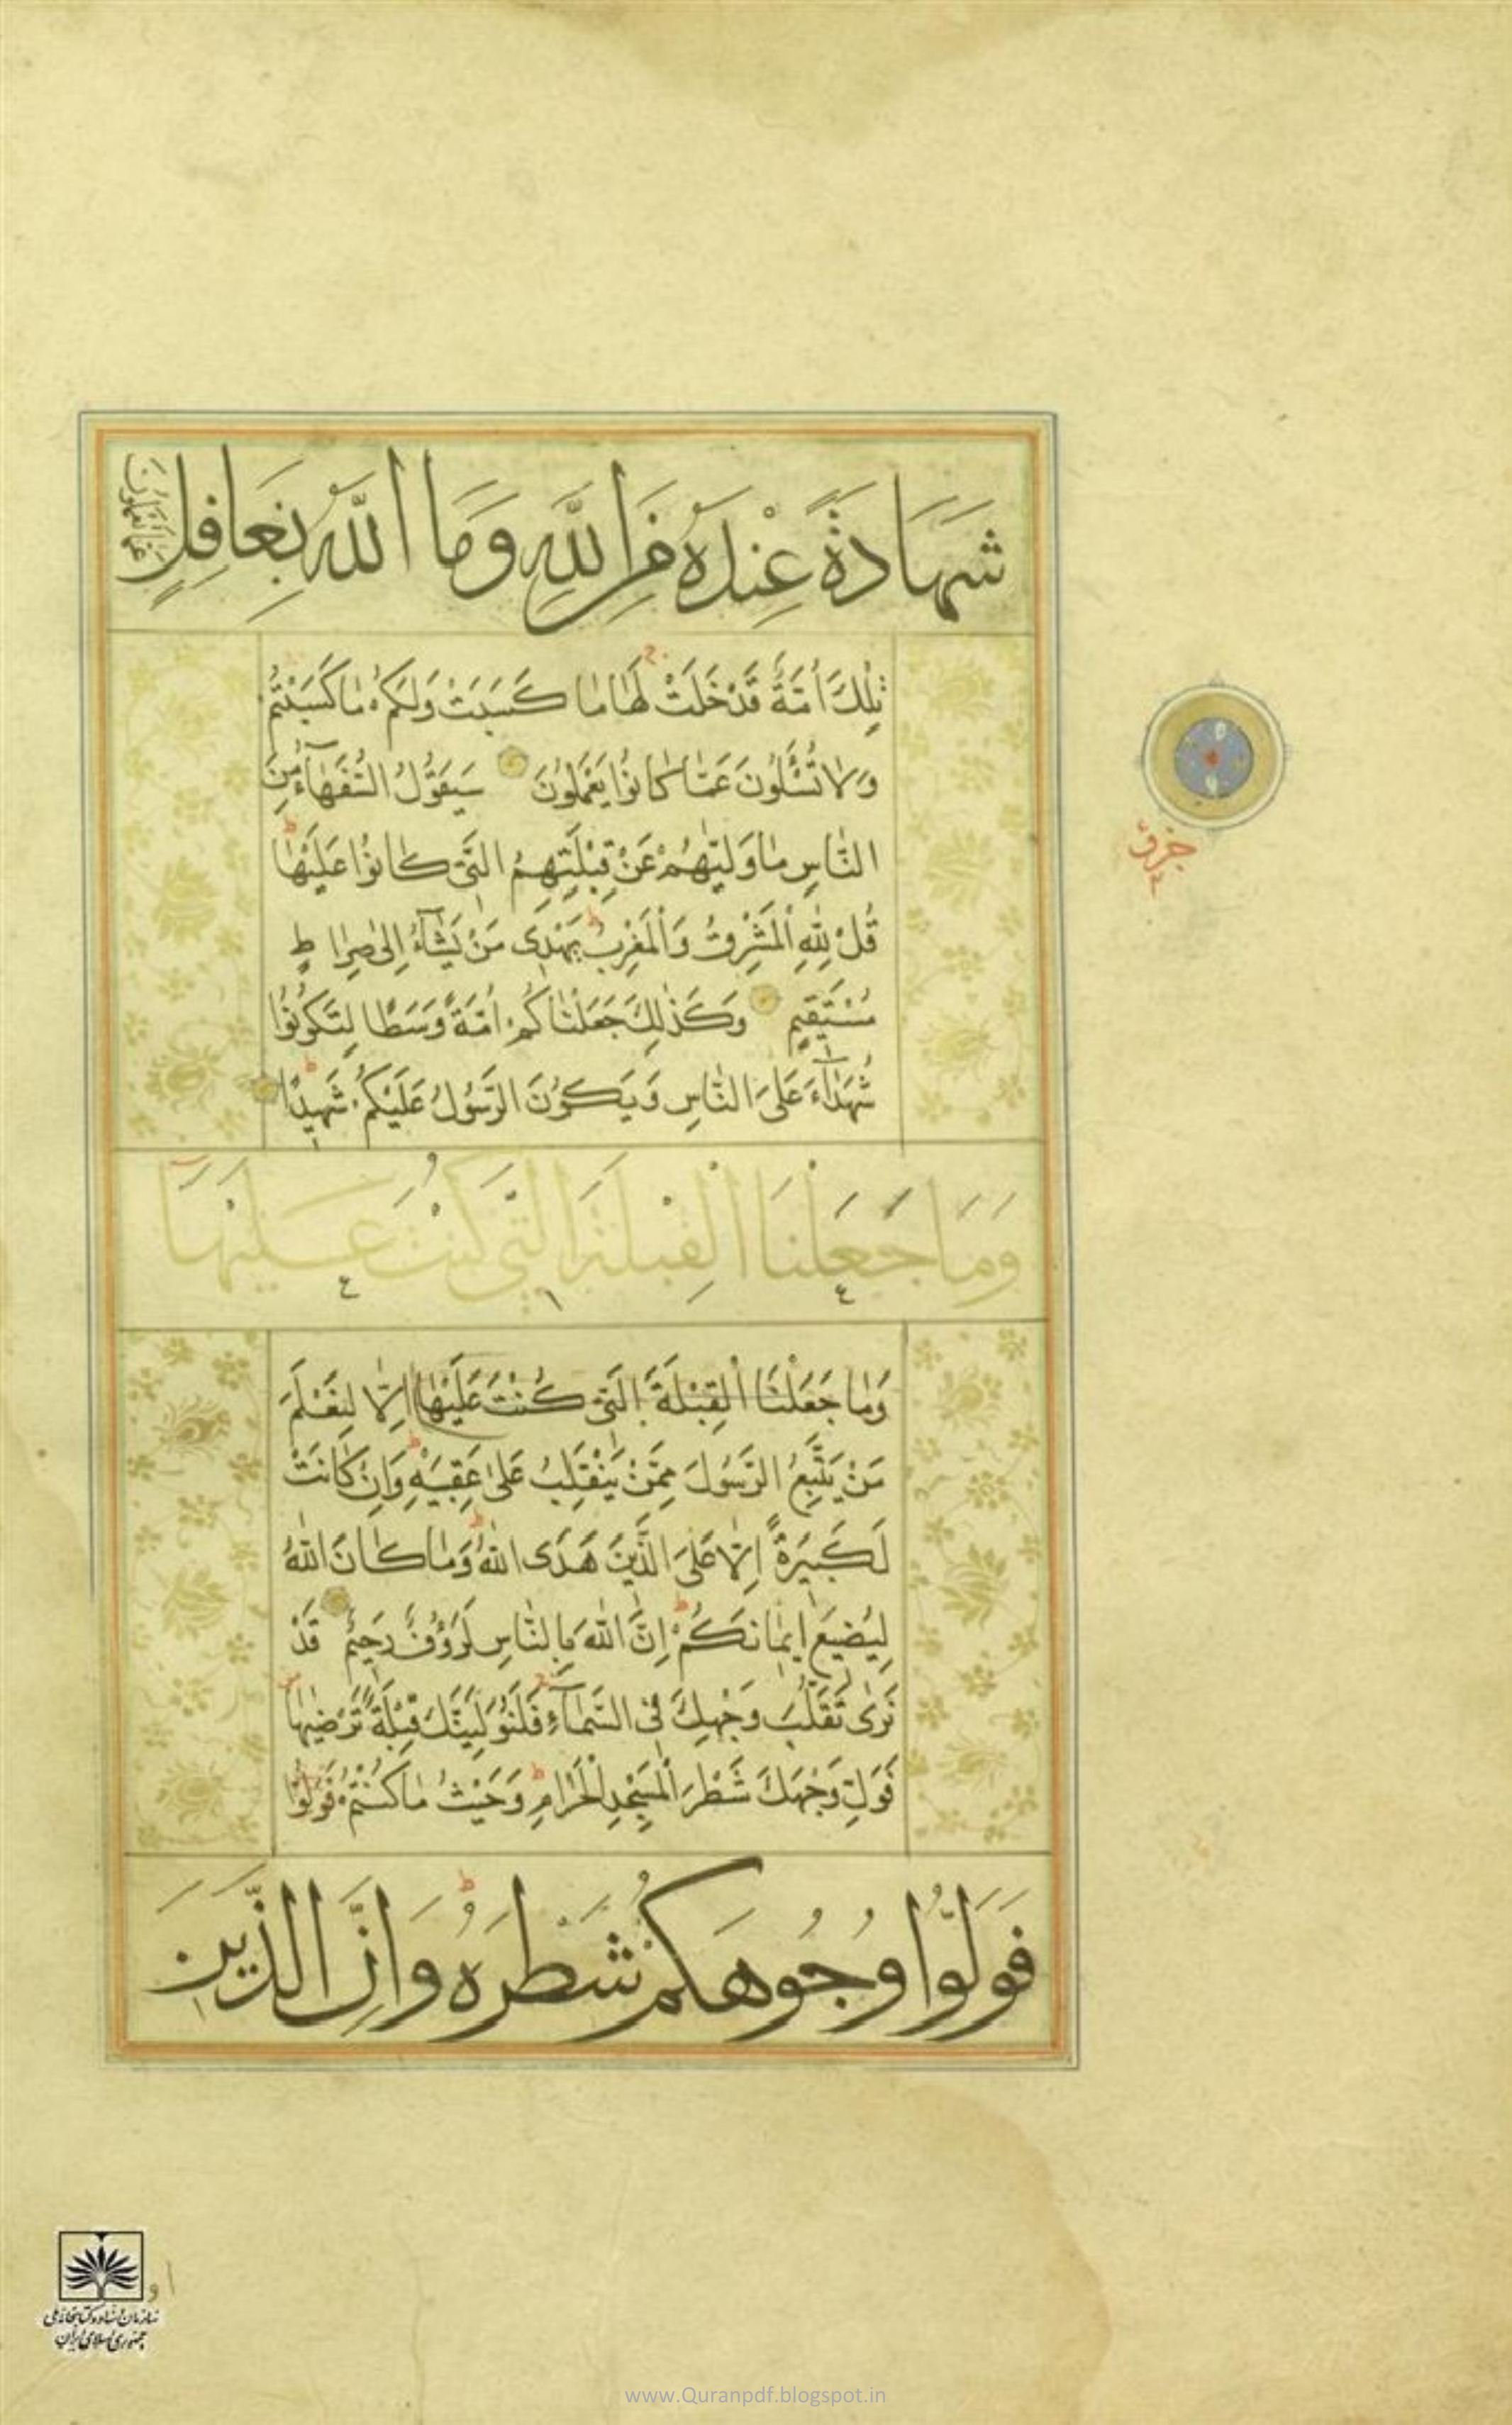 شَهَادَةً عِنْدَهُ مِنَ اللَّهِ وَمَا اللَّهُ بِغَافِلٍ عَمَّا تَعْمَلُونَ
تِلْكَ أُمَّةٌ قَدْ خَلَتْ لَهَا مَا كَسَبَتْ وَلَكُمْ مَا كَسَبْتُمْ
وَلَا تُسْئَلُونَ عَمَّا كَانُوا يَعْمَلُونَ سَيَقُولُ السُّفَهَآءُ مِنَ
النَّاسِ مَا وَلّٰيهُمْ عَنْ قِبْلَتِهِمُ الَّتِي كَانُوا عَلَيْهَا ط
قُلْ لِلَّهِ الْمَشْرِقُ وَالْمَغْرِبُ ط يَهْدِي مَنْ يَشَآءُ إِلَى صِرَاطٍ
مُسْتَقِيمٍ وَكَذٰلِكَ جَعَلْنَاكُمْ أُمَّةً وَسَطًا لِتَكُونُوا
شُهَدَآءَ عَلَى النَّاسِ وَيَكُونَ الرَّسُولُ عَلَيْكُمْ شَهِيدًا ط
وَمَا جَعَلْنَا الْقِبْلَةَ الَّتِي كُنْتَ عَلَيْهَا
وَمَا جَعَلْنَا الْقِبْلَةَ الَّتِي كُنْتَ عَلَيْهَا إِلَّا لِنَعْلَمَ
مَنْ يَتَّبِعُ الرَّسُولَ مِمَّنْ يَنْقَلِبُ عَلَى عَقِبَيْهِ ط وَإِنْ كَانَتْ
لَكَبِيرَةً إِلَّا عَلَى الَّذِينَ هَدَى اللَّهُ ط وَمَا كَانَ اللَّهُ
لِيُضِيعَ إِيمَانَكُمْ ط إِنَّ اللَّهَ بِالنَّاسِ لَرَؤُفٌ رَحِيمٌ قَدْ
نَرَى تَقَلُّبَ وَجْهِكَ فِي السَّمَآءِ فَلَنُوَلِّيَنَّكَ قِبْلَةً تَرْضٰيهَا
فَوَلِّ وَجْهَكَ شَطْرَ الْمَسْجِدِ الْحَرَامِ ط وَحَيْثُ مَا كُنْتُمْ فَوَلُّوا
فَوَلُّوا وُجُوهَكُمْ شَطْرَهُ ط وَإِنَّ الَّذِينَ
سازمان اسناد و کتابخانه ملی
جمهوری اسلامی ایران
www.Quranpdf.blogspot.in